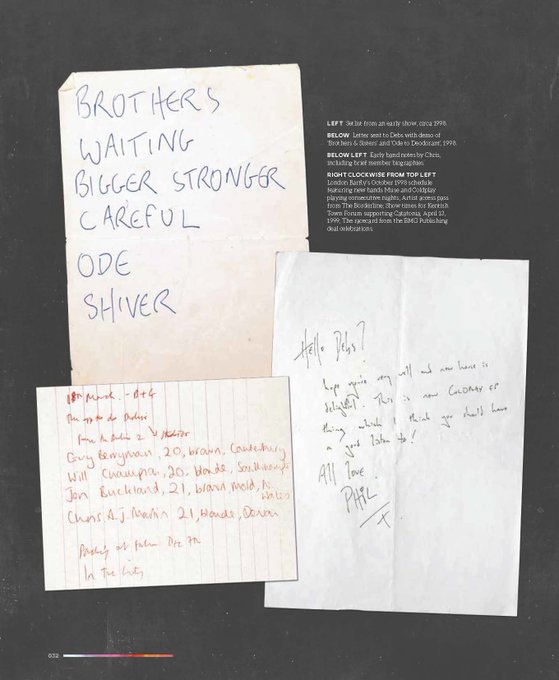 BROTHERS
WAITING
BIGGER STRONGER
CAREFUL
ODE
SHIVER
LEFT Set list from an early show, circa 1998.
BELOW Letter sent to Debs with demo of
'Brothers & Sisters' and 'Ode to Deodorant', 1998.
BELOW LEFT Early band notes by Chris,
including brief member biographies.
RIGHT CLOCKWISE FROM TOP LEFT
London Barfly's October 1998 schedule
featuring new bands Muse and Coldplay
playing consecutive nights; Artist access pass
from The Borderline; Show times for Kentish
Town Forum supporting Catatonia, April 12,
1999; The racecard from the BMG Publishing
deal celebrations.
Hello Debs!
hope you're very well and new house is
delightful. This is new COLDPLAY EP
thing which I think you should have
a good listen to!
All love
PHIL
X
18th March - B+G
Guy Berryman, 20, brown, Canterbury
Will Champion, 20, blonde, Southampton
Jon Buckland, 21, brown Mold, N.
Wales
Chris A.J. Martin 21, blonde, Devon
In The City
032